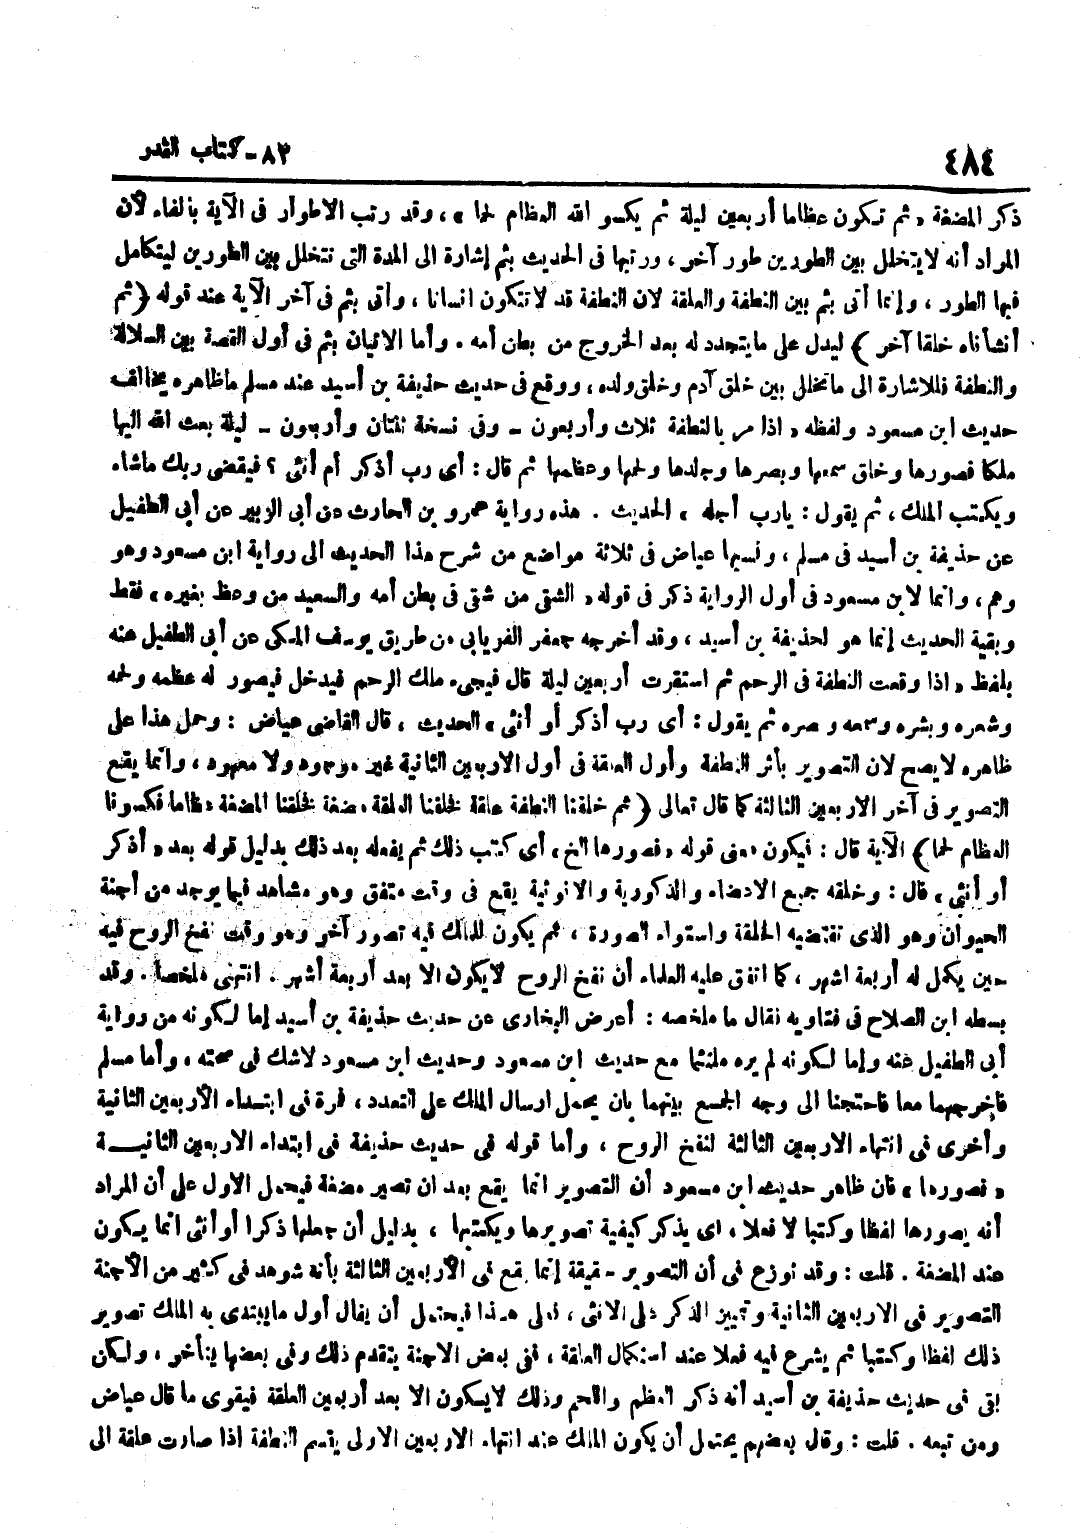 ٤٨٤
٨٢ - كتاب القدر
ذكر المضغة « ثم تكون عظاما أربعين ليلة ثم يكسو الله العظام لحما » ، وقد رتب الاطوار فى الآية بالفاء لأن
المراد أنه لا يتخلل بين الطورين طور آخر ، ورتبها فى الحديث بثم إشارة الى المدة التى تتخلل بين الطورين ليتكامل
فيها الطور ، وإنما أتى بثم بين النطفة والعلقة لان النطفة قد لا تتكون انسانا ، وأتى بثم فى آخر الآية عند قوله ﴿ ثم
أنشأناه خلقا آخر ﴾ ليدل على ما يتجدد له بعد الخروج من بطن أمه . وأما الاتيان بثم فى أول القصة بين السلالة
والنطفة فللاشارة الى ما تخلل بين خلق آدم وخلق ولده ، ووقع فى حديث حذيفة بن أسيد عند مسلم ما ظاهره يخالف
حديث ابن مسعود ولفظه « اذا مر بالنطفة ثلاث وأربعون - وفى نسخة ثنتان وأربعون - ليلة بعث الله اليها
ملكا فصورها وخلق سمعها وبصرها وجلدها ولحمها وعظامها ثم قال : أى رب أذكر أم أنثى ؟ فيقضى ربك ما شاء
ويكتب الملك ، ثم يقول : يارب أجله » الحديث . هذه رواية عمرو بن الحارث عن أبى الزبير عن أبى الطفيل
عن حذيفة بن أسيد فى مسلم ، ونسبها عياض فى ثلاثة مواضع من شرح هذا الحديث الى رواية ابن مسعود وهو
وهم ، وانما لابن مسعود فى أول الرواية ذكر فى قوله « الشقى من شقى فى بطن أمه والسعيد من وعظ بغيره » فقط
وبقية الحديث إنما هو لحذيفة بن أسيد ، وقد أخرجه جعفر الفريابى من طريق يوسف المكى عن أبى الطفيل عنه
بلفظ « اذا وقعت النطفة فى الرحم ثم استقرت أربعين ليلة قال فيجىء ملك الرحم فيدخل فيصور له عظمه ولحمه
وشعره وبشره وسمعه وبصره ثم يقول : أى رب أذكر أو أنثى » الحديث ، قال القاضى عياض : وحمل هذا على
ظاهره لا يصح لان التصوير بأثر النطفة وأول العلقة فى أول الاربعين الثانية غير موجود ولا معهود ، وانما يقع
التصوير فى آخر الاربعين الثالثة كما قال تعالى ﴿ ثم خلقنا النطفة علقة فخلقنا العلقة مضغة فخلقنا المضغة عظاما فكسونا
العظام لحما ﴾ الآية قال : فيكون معنى قوله « فصورها الخ » أى كتب ذلك ثم يفعله بعد ذلك بدليل قوله بعد « أذكر
أو أنثى » قال : وخلقه جميع الاعضاء والذكورية والانوثية يقع فى وقت متفق وهو مشاهد فيما يوجد من أجنة
الحيوان وهو الذى تقتضيه الخلقة واستواء الصورة ، ثم يكون للملك فيه تصور آخر وهو وقت نفخ الروح فيه
حين يكمل له أربعة اشهر ، كما اتفق عليه العلماء أن نفخ الروح لا يكون الا بعد أربعة أشهر . انتهى ملخصا . وقد
بسطه ابن الصلاح فى فتاويه فقال ما ملخصه : أعرض البخارى عن حديث حذيفة بن أسيد إما لكونه من رواية
أبى الطفيل عنه وإما لكونه لم يره ملتئما مع حديث ابن مسعود وحديث ابن مسعود لاشك فى صحته ، وأما مسلم
فاخرجهما معا فاحتجنا الى وجه الجمع بينهما بان يحمل ارسال الملك على التعدد ، فمرة فى ابتداء الأربعين الثانية
وأخرى فى انتهاء الاربعين الثالثة لنفخ الروح ، وأما قوله فى حديث حذيفة فى ابتداء الاربعين الثانيــة
« فصورها » فان ظاهر حديث ابن مسعود أن التصوير انما يقع بعد ان تصير مضغة فيحمل الاول على أن المراد
أنه يصورها لفظا وكتبا لا فعلا ، اى يذكر كيفية تصويرها ويكتبها ، بدليل أن جعلها ذكرا أو أنثى انما يكون
عند المضغة . قلت : وقد نوزع فى أن التصوير حقيقة إنما يقع فى الأربعين الثالثة بأنه شوهد فى كثير من الأجنة
التصوير فى الاربعين الثانية وتمييز الذكر على الانثى ، فعلى هذا فيحتمل أن يقال أول ما يبتدى به الملك تصوير
ذلك لفظا وكتبا ثم يشرع فيه فعلا عند استكمال العلقة ، ففى بعض الاجنة يتقدم ذلك وفى بعضها يتأخر ، ولكن
بقى فى حديث حذيفة بن أسيد أنه ذكر العظم واللحم وذلك لا يكون الا بعد أربعين العلقة فيقوى ما قال عياض
ومن تبعه . قلت : وقال بعضهم يحتمل أن يكون الملك عند انتهاء الاربعين الاولى يقسم النطفة اذا صارت علقة الى